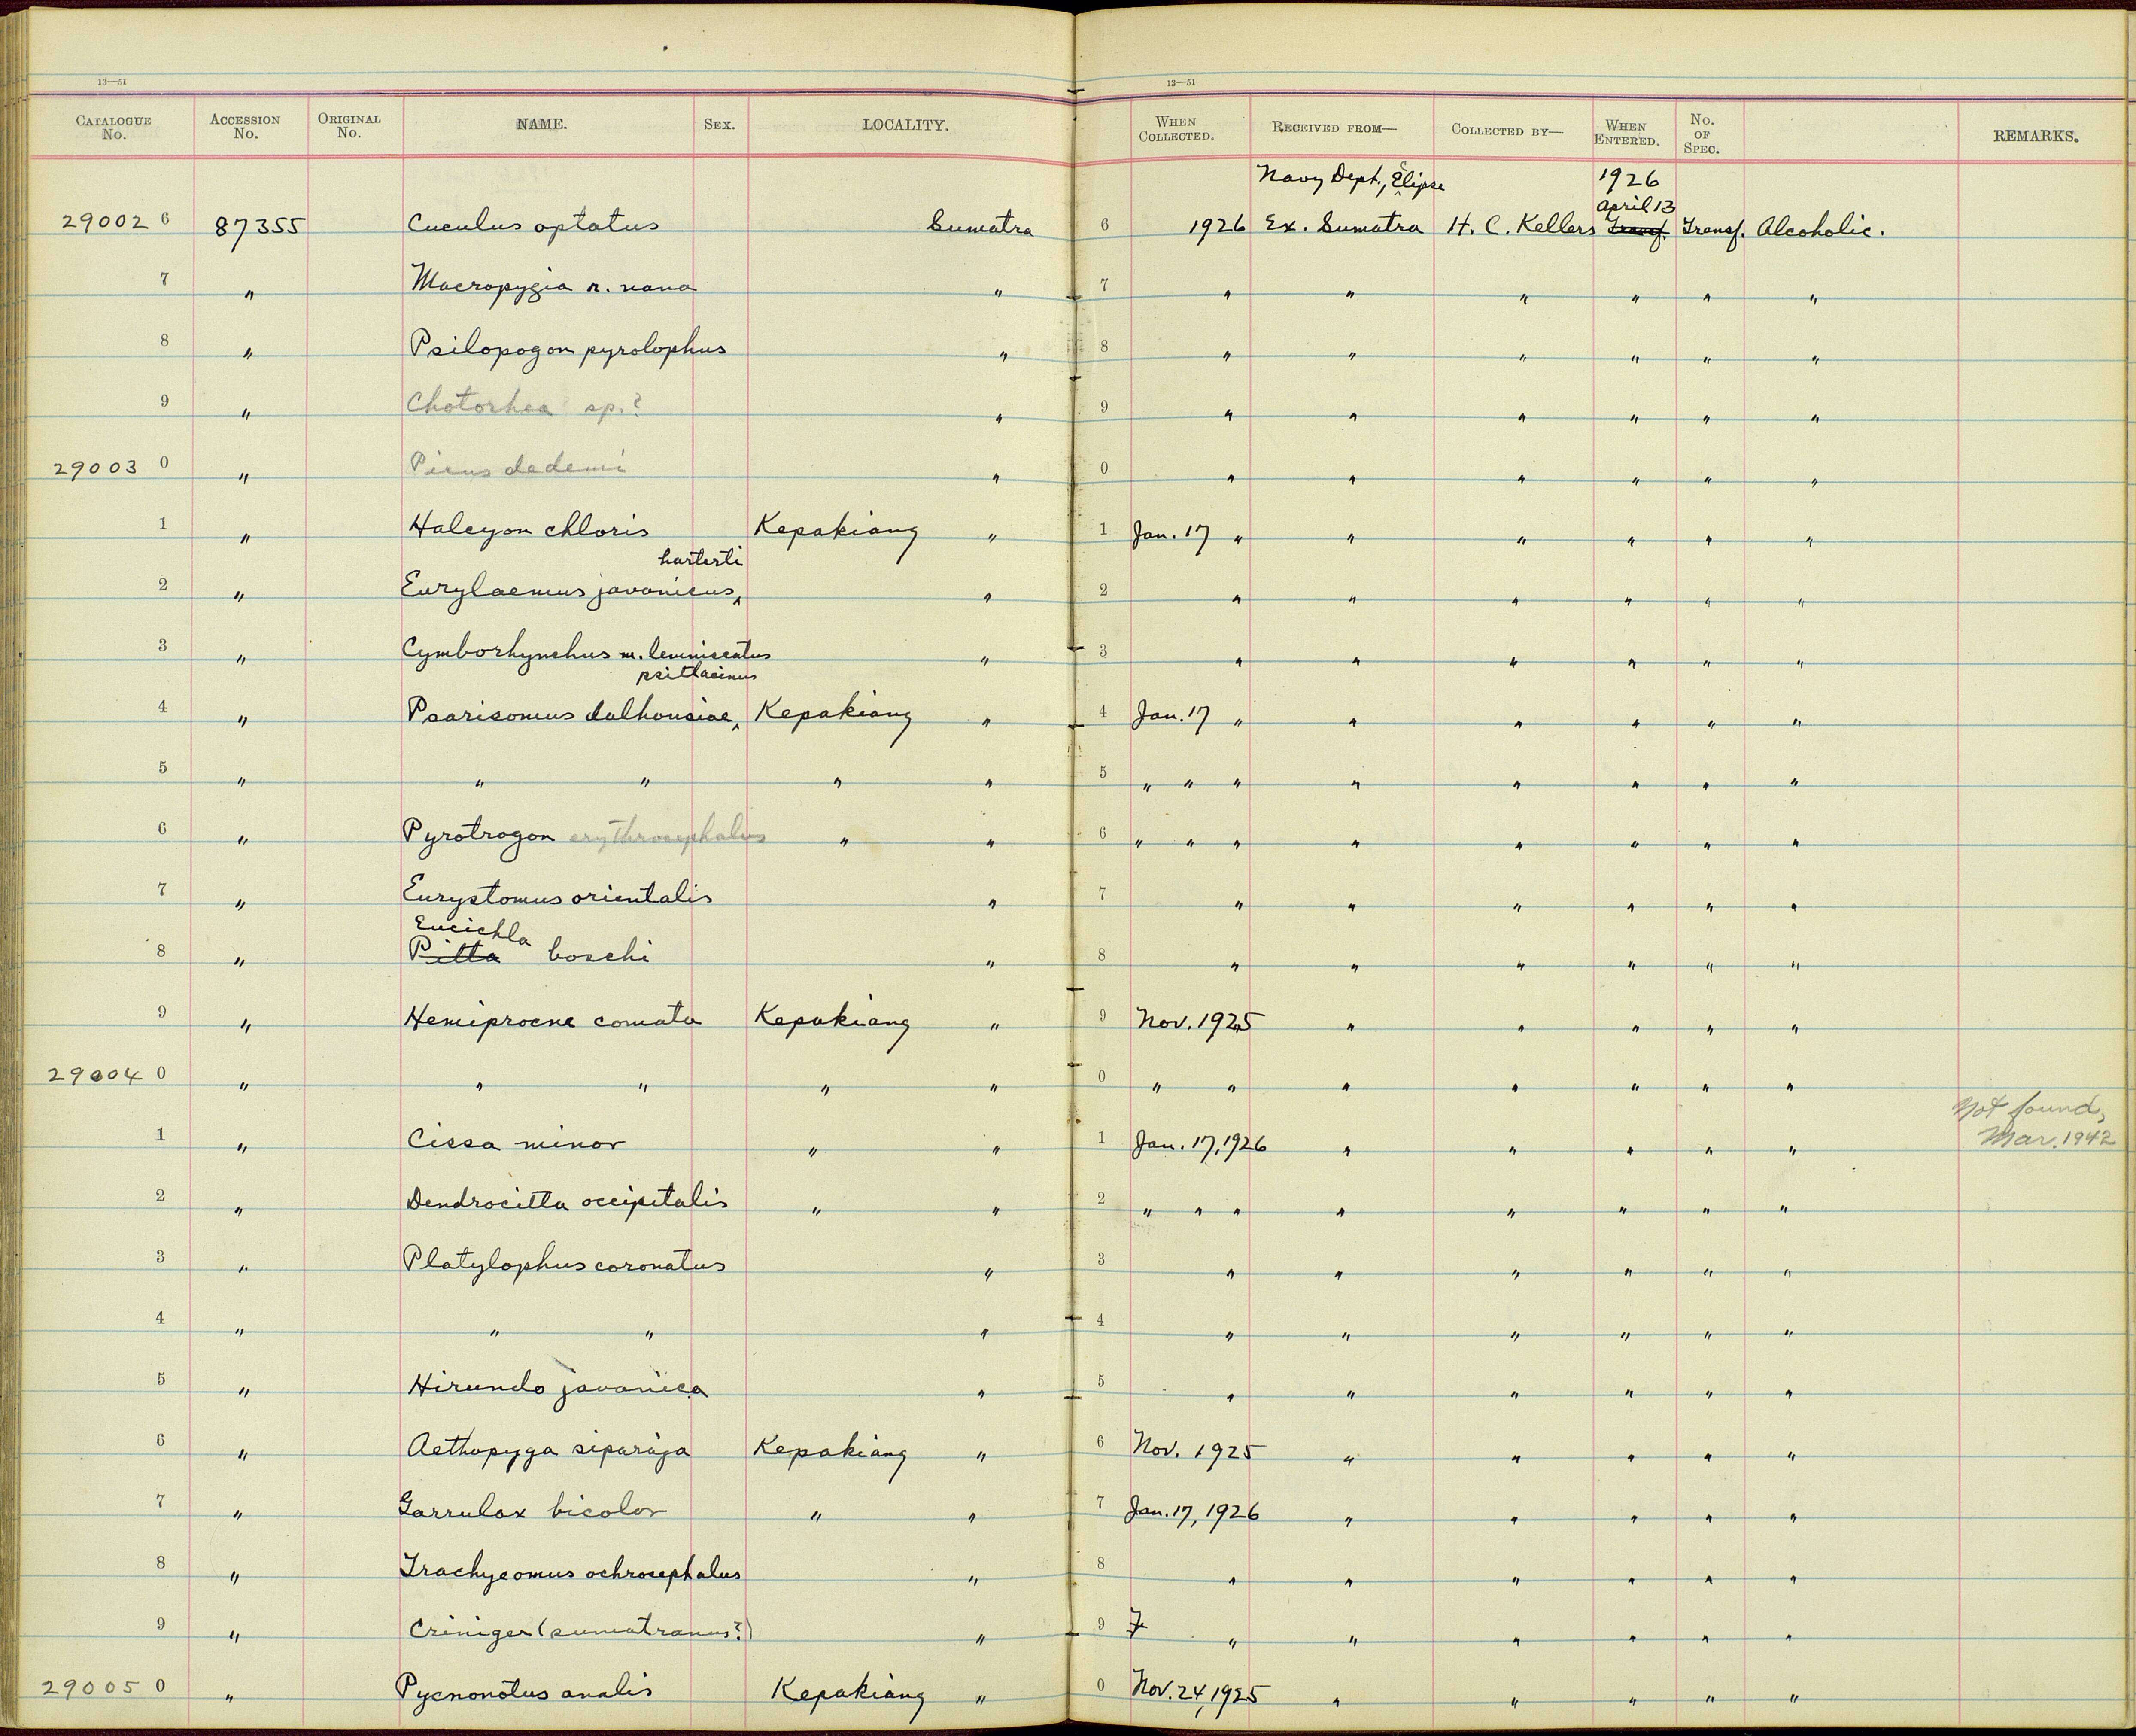 13—51 13—51
Catalogue No. Accession No. Original No. NAME. Sex. LOCALITY. When Collected. Received from— Collected by— When Entered. No. of Spec. REMARKS.
Navy Dept., Eclipse 1926
April 13
29002 6 87355 Cuculus optatus Sumatra 6 1926 Ex. Sumatra H. C. Kellers Transf. Transf. Alcoholic.
7 " Macropygia r. nana " 7 " " " " " "
8 " Psilopogon pyrolophus " 8 " " " " " "
9 " Chotorhea sp.? " 9 " " " " " "
29003 0 " Picus dedemi " 0 " " " " " "
1 " Halcyon chloris Kepakiang " 1 Jan. 17 " " " " " "
harterti
2 " Eurylaemus javanicus " 2 " " " " " "
3 " Cymborhynchus m. lemniscatus " 3 " " " " " "
psittacinus
4 " Psarisomus dalhousiae Kepakiang " 4 Jan. 17 " " " " " "
5 " " " " " 5 " " " " " " " "
6 " Pyrotrogon erythrocephalus " " 6 " " " " " " " "
7 " Eurystomus orientalis " 7 " " " " " "
Eucichla
8 " Pitta boschi " 8 " " " " " "
9 " Hemiprocne comata Kepakiang " 9 Nov. 1925 " " " " "
29004 0 " " " " " 0 " " " " " " "
Not found,
1 " Cissa minor " " 1 Jan. 17, 1926 " " " " " Mar. 1942
2 " Dendrocitta occipitalis " " 2 " " " " " " " "
3 " Platylophus coronatus " 3 " " " " " "
4 " " " " 4 " " " " " "
5 " Hirundo javanica " 5 " " " " " "
6 " Aethopyga siparaja Kepakiang " 6 Nov. 1925 " " " " "
7 " Garrulax bicolor " " 7 Jan. 17, 1926 " " " " "
8 " Trachycomus ochrocephalus " 8 " " " " " "
9 " Criniger (sumatranus?) " 9 " " " " " "
29005 0 " Pycnonotus analis Kepakiang " 0 Nov. 24, 1925 " " " " "